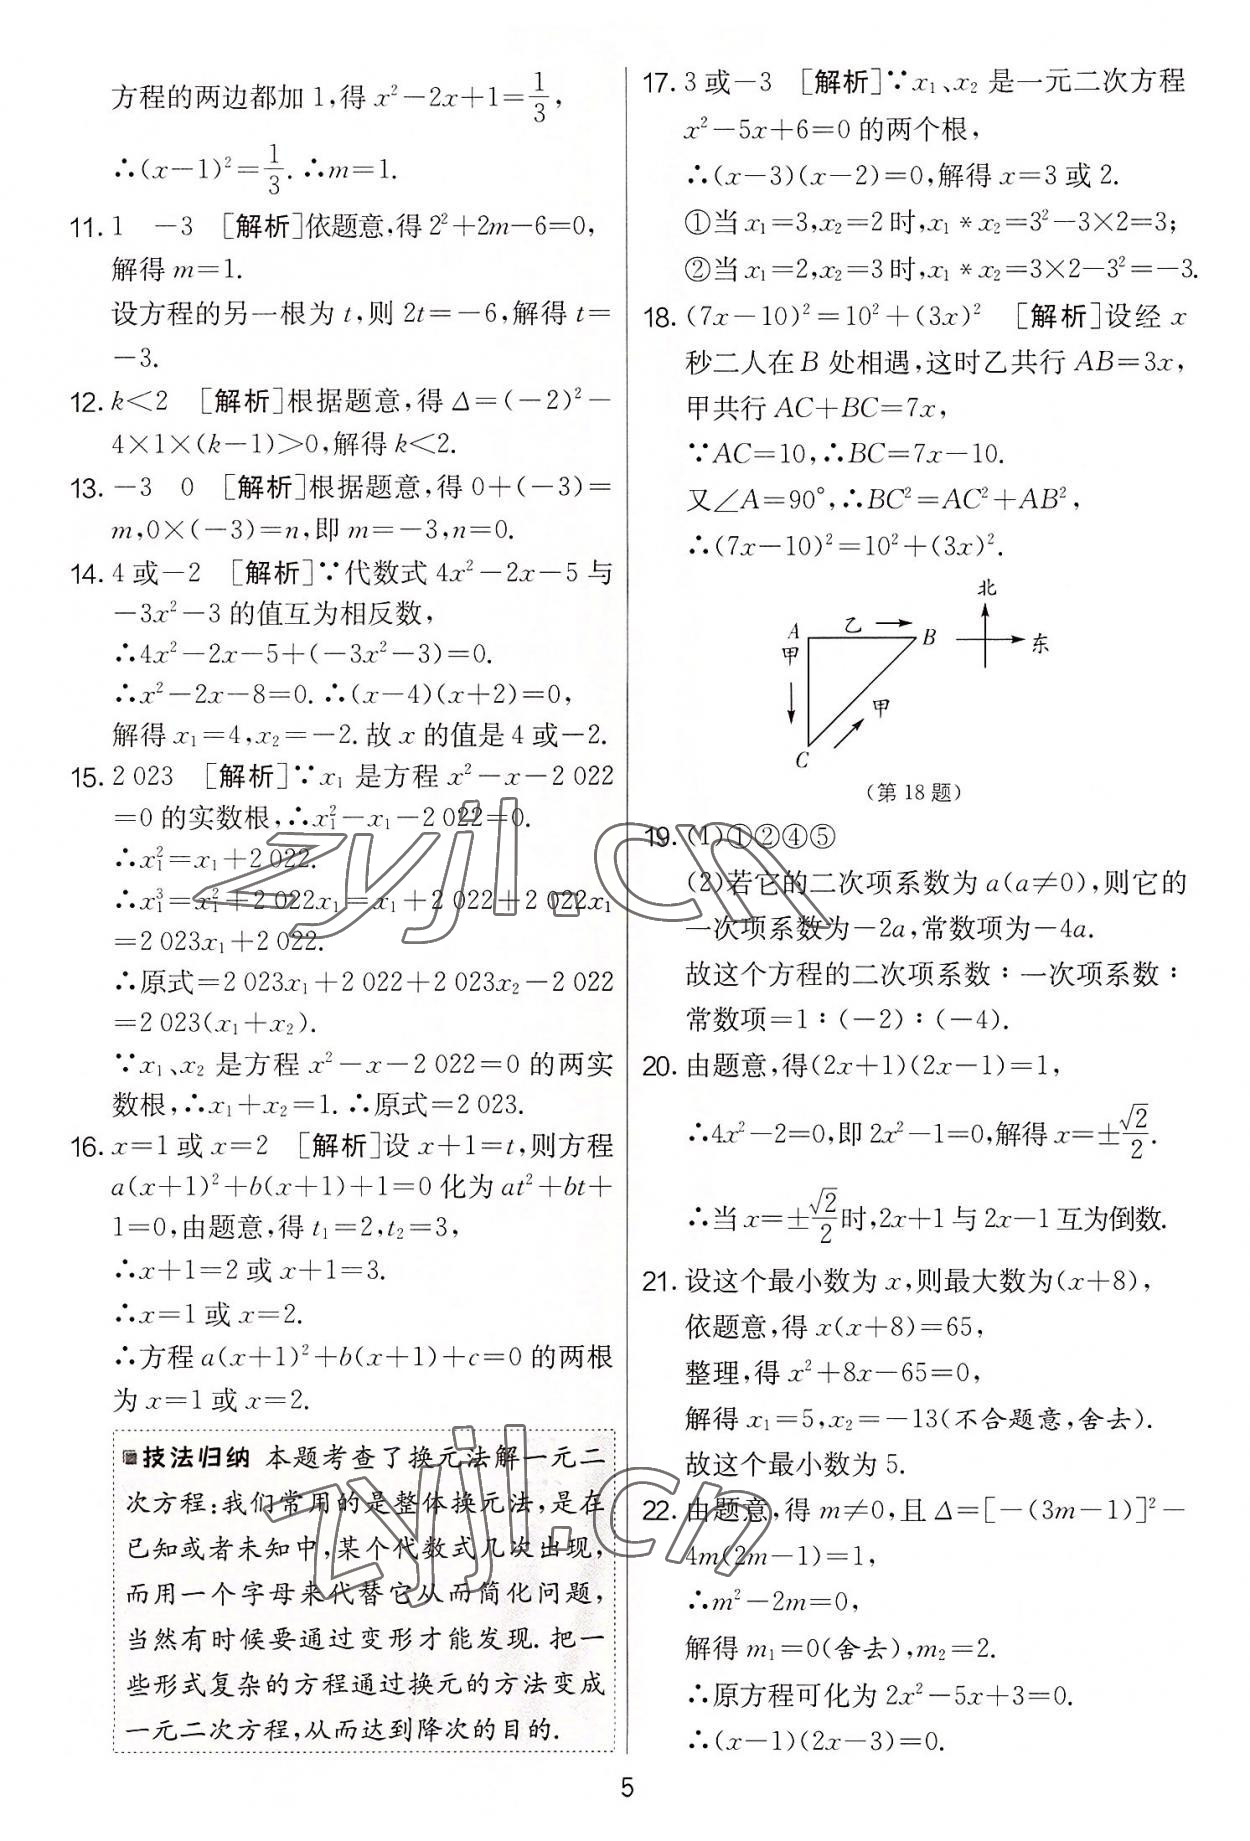 方程的两边都加 1,得 x²-2x+1=1/3,
∴(x-1)²=1/3. ∴m=1.
11. 1 -3 [解析]依题意,得 2²+2m-6=0,
解得 m=1.
设方程的另一根为 t,则 2t=-6,解得 t=
-3.
12. k<2 [解析]根据题意,得 Δ=(-2)²-
4×1×(k-1)>0,解得 k<2.
13. -3 0 [解析]根据题意,得 0+(-3)=
m,0×(-3)=n,即 m=-3,n=0.
14. 4 或-2 [解析]∵代数式 4x²-2x-5 与
-3x²-3 的值互为相反数,
∴4x²-2x-5+(-3x²-3)=0.
∴x²-2x-8=0. ∴(x-4)(x+2)=0,
解得 x₁=4,x₂=-2. 故 x 的值是 4 或-2.
15. 2 023 [解析]∵x₁ 是方程 x²-x-2 022
=0 的实数根,∴x₁²-x₁-2 022=0.
∴x₁²=x₁+2 022.
∴x₁³=x₁²+2 022x₁=x₁+2 022+2 022x₁
=2 023x₁+2 022.
∴原式=2 023x₁+2 022+2 023x₂-2 022
=2 023(x₁+x₂).
∵x₁、x₂ 是方程 x²-x-2 022=0 的两实
数根,∴x₁+x₂=1. ∴原式=2 023.
16. x=1 或 x=2 [解析]设 x+1=t,则方程
a(x+1)²+b(x+1)+1=0 化为 at²+bt+
1=0,由题意,得 t₁=2,t₂=3,
∴x+1=2 或 x+1=3.
∴x=1 或 x=2.
∴方程 a(x+1)²+b(x+1)+c=0 的两根
为 x=1 或 x=2.
技法归纳 本题考查了换元法解一元二
次方程:我们常用的是整体换元法,是在
已知或者未知中,某个代数式几次出现,
而用一个字母来代替它从而简化问题,
当然有时候要通过变形才能发现. 把一
些形式复杂的方程通过换元的方法变成
一元二次方程,从而达到降次的目的.
17. 3 或-3 [解析]∵x₁、x₂ 是一元二次方程
x²-5x+6=0 的两个根,
∴(x-3)(x-2)=0,解得 x=3 或 2.
①当 x₁=3,x₂=2 时,x₁*x₂=3²-3×2=3;
②当 x₁=2,x₂=3 时,x₁*x₂=3×2-3²=-3.
18. (7x-10)²=10²+(3x)² [解析]设经 x
秒二人在 B 处相遇,这时乙共行 AB=3x,
甲共行 AC+BC=7x,
∵AC=10,∴BC=7x-10.
又∠A=90°,∴BC²=AC²+AB²,
∴(7x-10)²=10²+(3x)².
北
A 乙 B 东
甲
甲
C
(第 18 题)
19. (1)①②④⑤
(2)若它的二次项系数为 a(a≠0),则它的
一次项系数为-2a,常数项为-4a.
故这个方程的二次项系数∶一次项系数∶
常数项=1∶(-2)∶(-4).
20. 由题意,得(2x+1)(2x-1)=1,
∴4x²-2=0,即 2x²-1=0,解得 x=±√2/2.
∴当 x=±√2/2时,2x+1 与 2x-1 互为倒数.
21. 设这个最小数为 x,则最大数为(x+8),
依题意,得 x(x+8)=65,
整理,得 x²+8x-65=0,
解得 x₁=5,x₂=-13(不合题意,舍去).
故这个最小数为 5.
22. 由题意,得 m≠0,且 Δ=[-(3m-1)]²-
4m(2m-1)=1,
∴m²-2m=0,
解得 m₁=0(舍去),m₂=2.
∴原方程可化为 2x²-5x+3=0.
∴(x-1)(2x-3)=0.
5
zyjl.cn
zyjl.cn